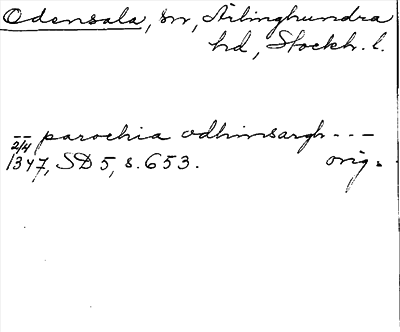 Odensala, sn, Ärlinghundra
hd, Stockh. l.
-- parochia odhinsargh - - -
2/4
1347, SD 5, s. 653. orig.